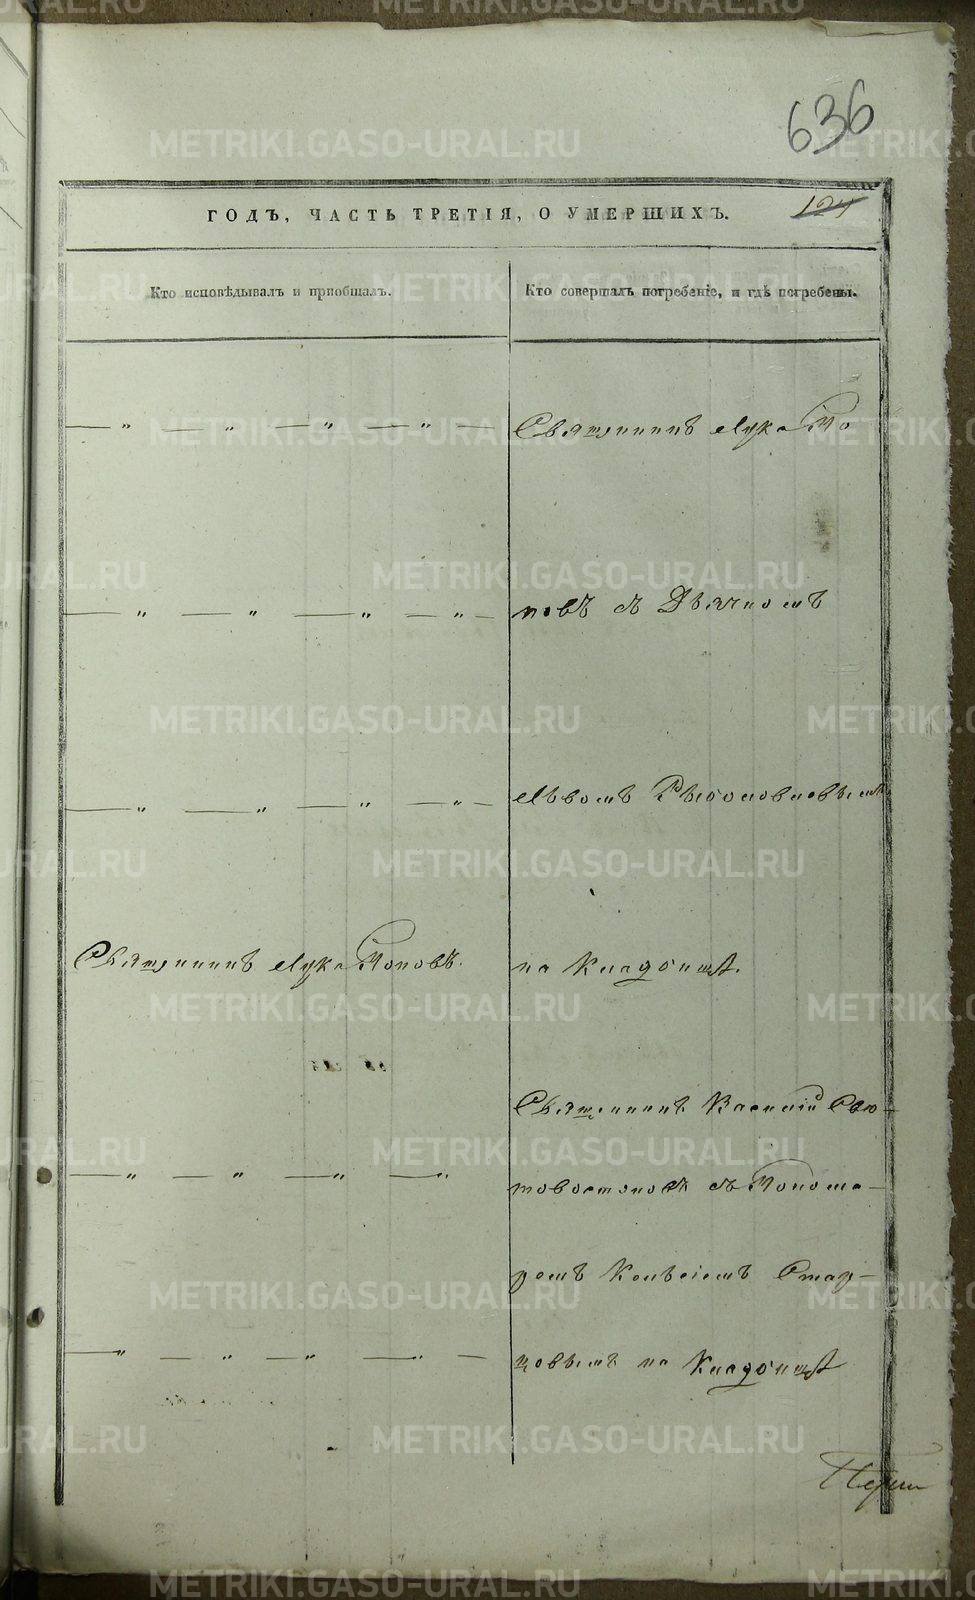 636
124
ГОДЪ, ЧАСТЬ ТРЕТІЯ, О УМЕРШИХЪ.
Кто исповѣдывалъ и пріобщалъ.
Кто совершалъ погребеніе, и гдѣ погребены.
Священникъ Лука По
повъ съ Дьячкомъ
Львомъ
Священникъ Лука Поповъ.
на Кладбищѣ.
Священникъ Василій Свѣ-
съ Понома-
ремъ Стар-
цовымъ на Кладбищѣ
METRIKI.GASO-URAL.RU